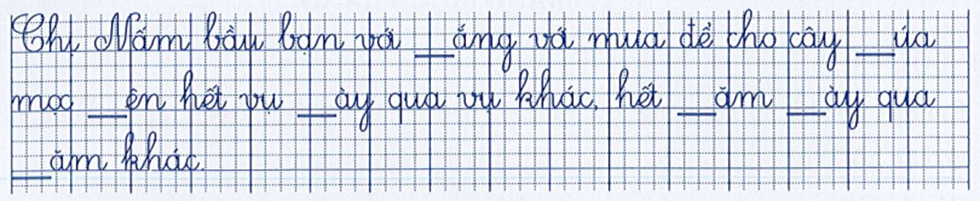 Chị Nấm bầu bạn với __áng và mưa để cho cây __úa
mọc __ên hết vụ __ày qua vụ khác, hết __ăm __ày qua
__ăm khác.